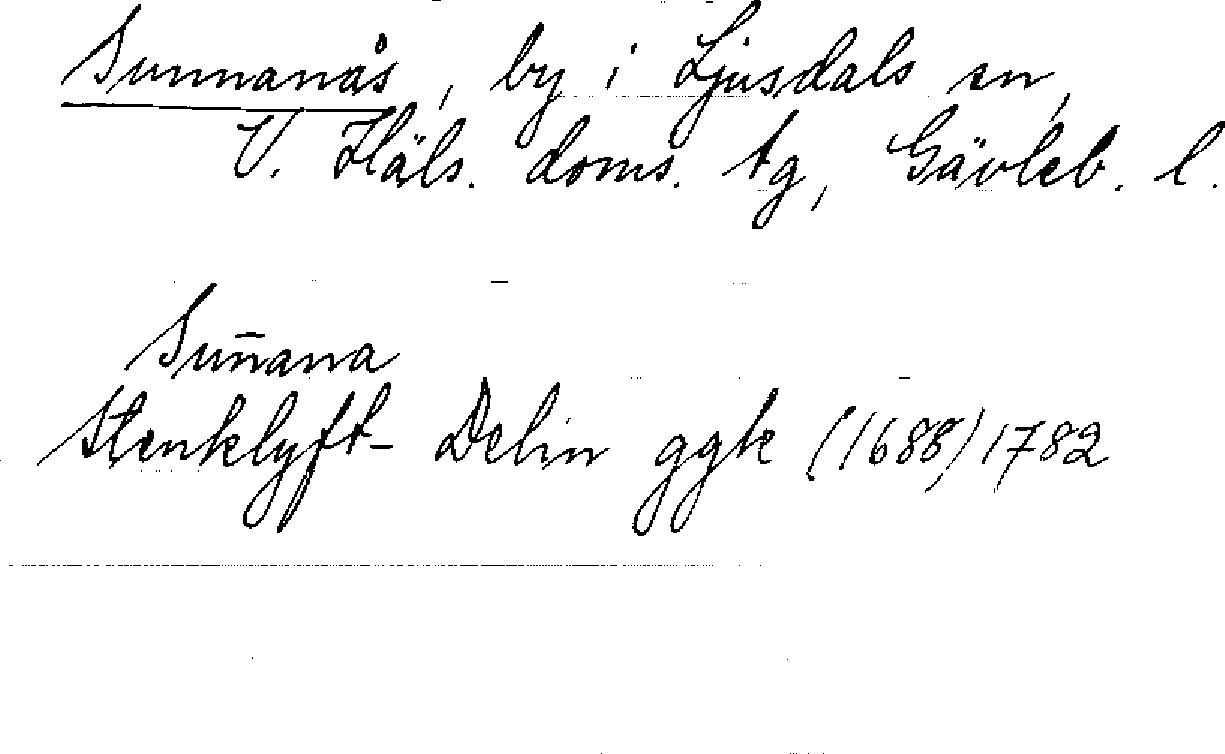 Sunnanås, by i Ljusdals sn,
V. Häls. doms. tg, Gävleb. l.
Sun̄ana
Stenklyft- Delin ggk (1688) 1782